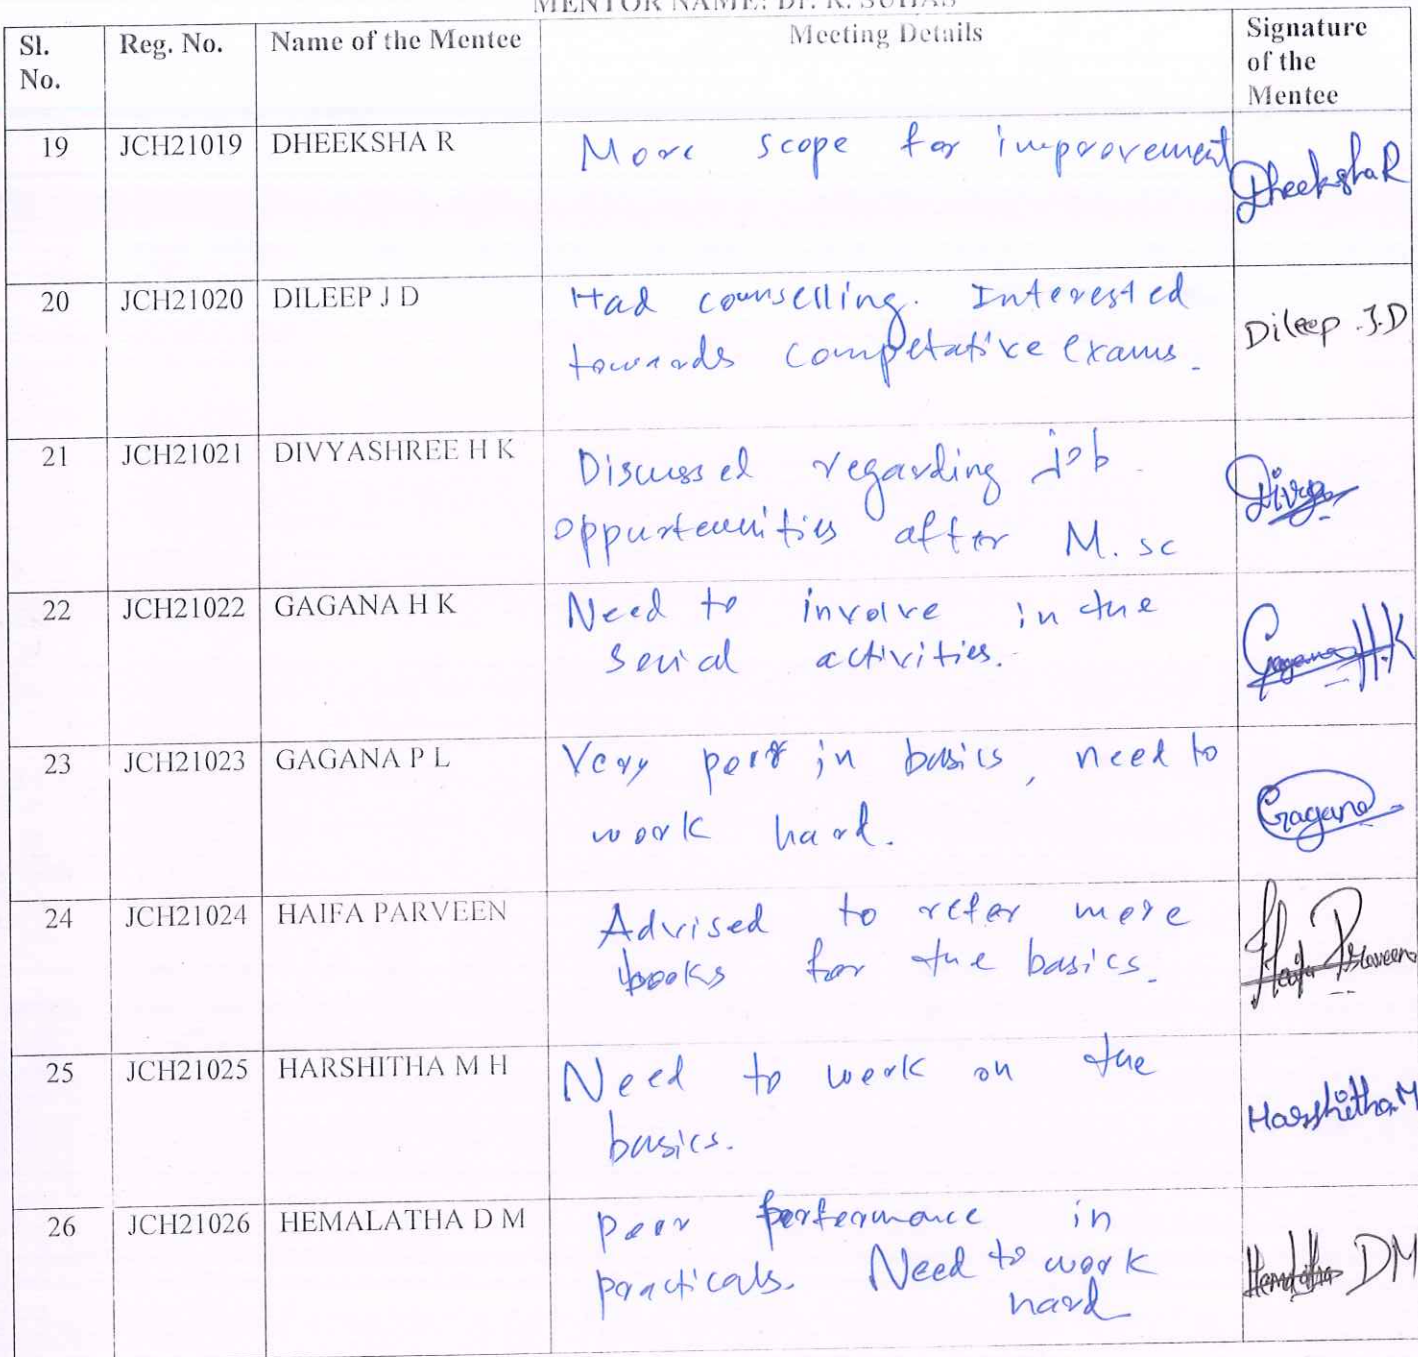 MENTOR NAME: Dr. K. SUHAS
Sl. No. Reg. No. Name of the Mentee Meeting Details Signature of the Mentee
19 JCH21019 DHEEKSHA R More scope for improvement Dheeksha R
20 JCH21020 DILEEP J D Had counselling. Interested
towards competative exams. Dileep .J.D
21 JCH21021 DIVYASHREE H K Discussed regarding job
oppurtunities after M.sc Divya
22 JCH21022 GAGANA H K Need to involve in the
activities. Gagana H.K
23 JCH21023 GAGANA P L Very poor in basics, need to
work hard. Gagana
24 JCH21024 HAIFA PARVEEN Advised to refer more
books for the basics.
25 JCH21025 HARSHITHA M H Need to work on the
basics. Harshitha.M
26 JCH21026 HEMALATHA D M poor performance in
practicals. Need to work
hard DM